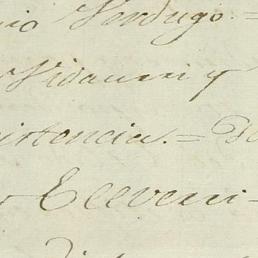 nio Verdugo. =
Vidaurri y
istencia. = De
Eccveri-